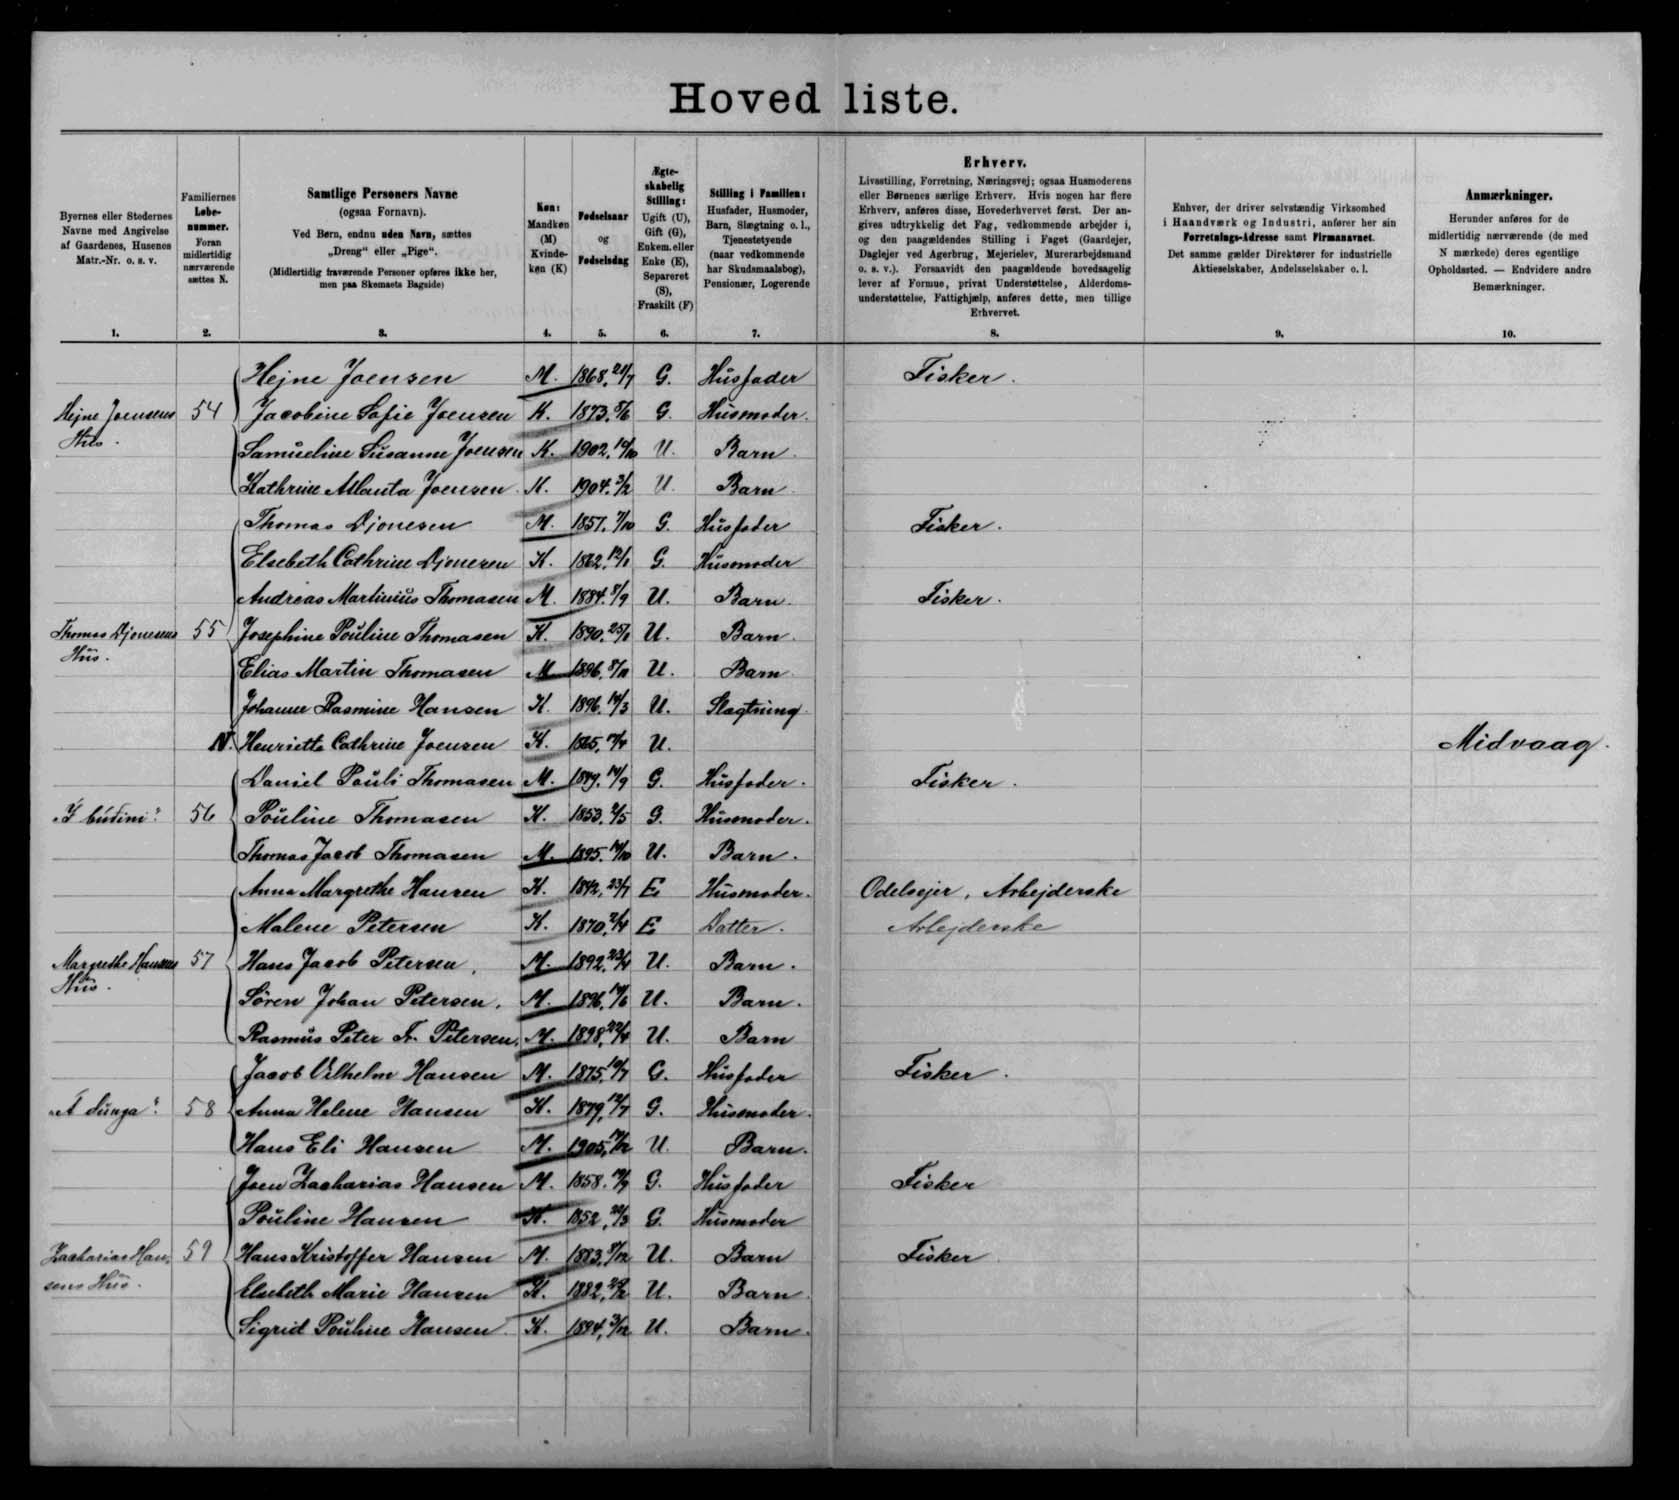 Hovedliste.
1. Byernes eller Stedernes Navne med Angivelse af Gaardenes, Husenes Matr.-Nr. o. s. v.
2. Familiernes Løbenummer. Foran midlertidig nærværende sættes N.
3. Samtlige Personers Navne (ogsaa Fornavn). Ved Børn, endnu uden Navn, sættes „Dreng“ eller „Pige“. (Midlertidig fraværende Personer opføres ikke her, men paa Skemaets Bagside)
4. Køn: Mandkøn (M) Kvindekøn (K)
5. Fødselsaar og Fødselsdag
6. Ægteskabelig Stilling: Ugift (U), Gift (G), Enkem. eller Enke (E), Separeret (S), Fraskilt (F)
7. Stilling i Familien: Husfader, Husmoder, Barn, Slægtning o. l., Tjenestetyende (naar vedkommende har Skudsmaalsbog), Pensionær, Logerende
8. Erhverv. Livsstilling, Forretning, Næringsvej; ogsaa Husmoderens eller Børnenes særlige Erhverv. Hvis nogen har flere Erhverv, anføres disse, Hovederhvervet først. Der angives udtrykkelig det Fag, vedkommende arbejder i, og den paagældendes Stilling i Faget (Gaardejer, Daglejer ved Agerbrug, Mejerielev, Murerarbejdsmand o. s. v.). Forsaavidt den paagældende hovedsagelig lever af Formue, privat Understøttelse, Alderdomsunderstøttelse, Fattighjælp, anføres dette, men tillige Erhvervet.
9. Enhver, der driver selvstændig Virksomhed i Haandværk og Industri, anfører her sin Forretnings-Adresse samt Firmanavnet. Det samme gælder Direktører for industrielle Aktieselskaber, Andelsselskaber o. l.
10. Anmærkninger. Herunder anføres for de midlertidig nærværende (de med N mærkede) deres egentlige Opholdssted. — Endvidere andre Bemærkninger.
Hejne Joensen M. 1868, 21/7 G. Husfader Fisker.
Hejne Joensens Hus. 54 Jacobine Sofie Joensen K. 1873, G. Husmoder.
Samueline Susanne Joensen K. 1902, U. Barn.
Kathrine Atlanta Joensen K. 1904, 3/2 U. Barn
Thomas Djonesen M. 1857, 7/10 G. Husfader Fisker.
Elsebeth Cathrine Djonesen K. 1862, G. Husmoder
Andreas Martinius Thomasen M. 1884, 8/9 U. Barn. Fisker.
Thomas Djonesens Hus. 55 Josephine Pouline Thomasen K. 1890, U. Barn.
Elias Martin Thomasen M 1896, U. Barn
Johanne Rasmine Hansen K. 1896, 14/3 U. Slægtning.
N. Henriette Cathrine Joensen K. 1865, U. Midvaag.
Daniel Pouli Thomasen M. 1849, 14/9 G. Husfader. Fisker.
„I búdini“ 56 Pouline Thomasen K. 1853, G. Husmoder.
Thomas Jacob Thomasen M. 1895, U. Barn.
Anna Margrethe Hansen K. 1842, 23/7 E Husmoder. Odelsejer, Arbejderske
Malene Petersen K. 1870, E Datter. Arbejderske
Margrethe Hansens Hus. 57 Hans Jacob Petersen, M. 1892, U. Barn.
Søren Johan Petersen, M. 1896, U. Barn.
Rasmus Peter Fr. Petersen, M. 1898, U. Barn
Jacob Vilhelm Hansen M. 1875, G. Husfader Fisker.
58 Anna Helene Hansen K. 1879, G. Husmoder.
Hans Eli Hansen M. 1905, U. Barn.
Joen Zacharias Hansen M. 1858, G. Husfader Fisker
Pouline Hansen K. 1852, G. Husmoder
Zacharias Hansens Hus. 59 Hans Kristoffer Hansen M. 1883, U. Barn Fisker
Elsebeth Marie Hansen K. 1882, U. Barn
Sigrid Pouline Hansen. K. 1894, U. Barn.